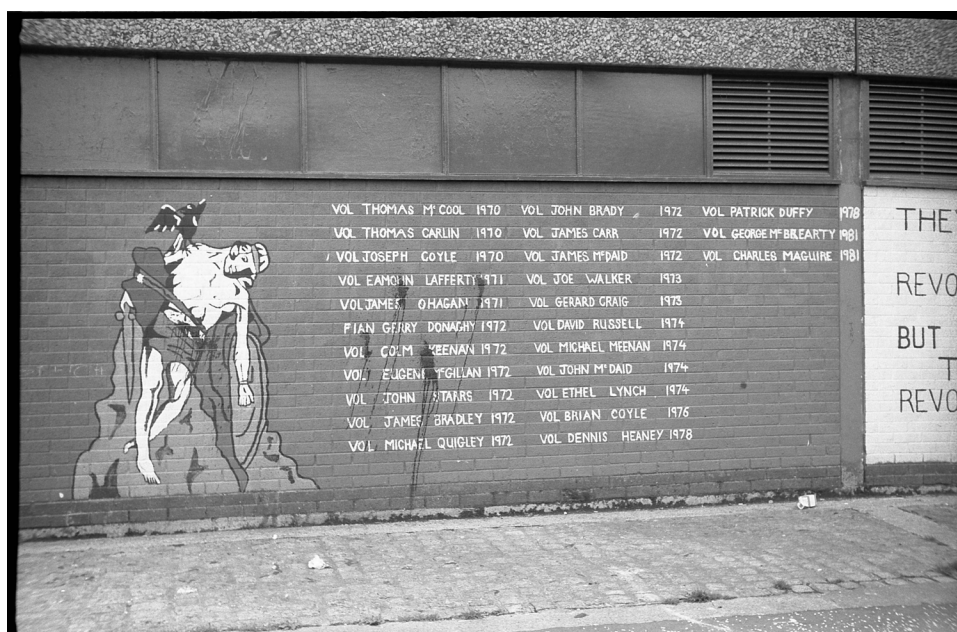 VOL THOMAS McCOOL 1970
VOL THOMAS CARLIN 1970
VOL JOSEPH COYLE 1970
VOL EAMONN LAFFERTY 1971
VOL JAMES OHAGAN 1971
FIAN GERRY DONAGHY 1972
VOL COLM KEENAN 1972
VOL EUGENE McGILLAN 1972
VOL JOHN STARRS 1972
VOL JAMES BRADLEY 1972
VOL MICHAEL QUIGLEY 1972
VOL JOHN BRADY 1972
VOL JAMES CARR 1972
VOL JAMES McDAID 1972
VOL JOE WALKER 1973
VOL GERARD CRAIG 1973
VOL DAVID RUSSELL 1974
VOL MICHAEL MEENAN 1974
VOL JOHN McDAID 1974
VOL ETHEL LYNCH 1974
VOL BRIAN COYLE 1976
VOL DENNIS HEANEY 1978
VOL PATRICK DUFFY 1978
VOL GEORGE McBREARTY 1981
VOL CHARLES MAGUIRE 1981
THEY
REVO
BUT
T
REVO